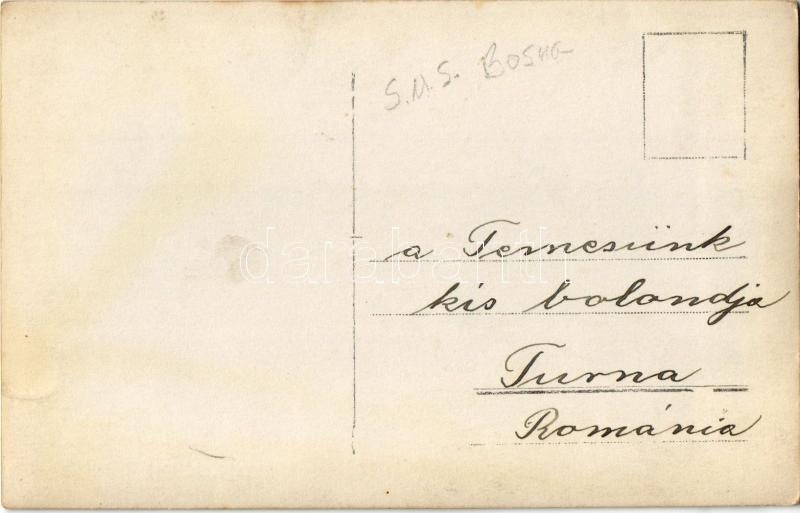 S.M.S. Bosna
a Temesünk
kis bolondja
Turna
Románia
darabanth